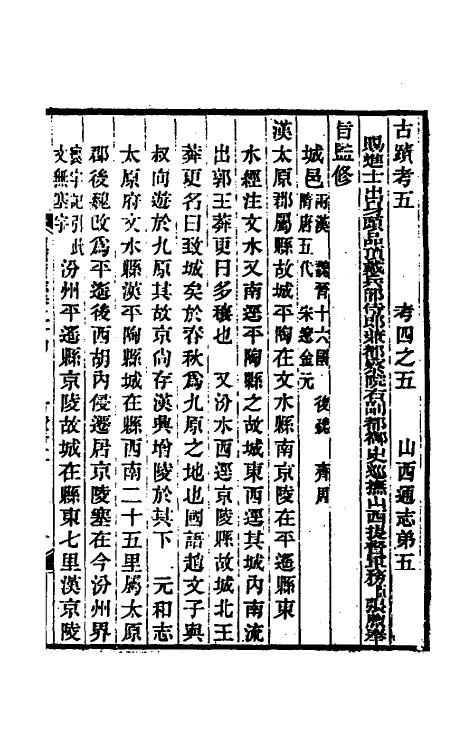 古蹟考五 考四之五 山西通志第五
賜進士出身頭品頂戴兵部侍郎兼都察院右副都御史巡撫山西提督軍務張煦奉
旨監修
城邑兩漢 魏晉十六國 後魏 齊周
隋唐五代 宋遼金元
漢太原郡屬縣故城平陶在文水縣南京陵在平遙縣東
水經注文水又南逕平陶縣之故城東西逕其城內南流
出郭王莽更曰多穰也 又汾水西逕京陵縣故城北王
莽更名曰致城矣於春秋爲九原之地也國語趙文子與
叔向遊於九原其故京尚存漢興增陵於其下 元和志
太原府文水縣漢平陶縣城在縣西南二十五里屬太原
郡後魏改爲平遙後西胡內侵遷居京陵塞在今汾州界
寰宇記引此
文無塞字 汾州平遙縣京陵故城在縣東七里漢京陵